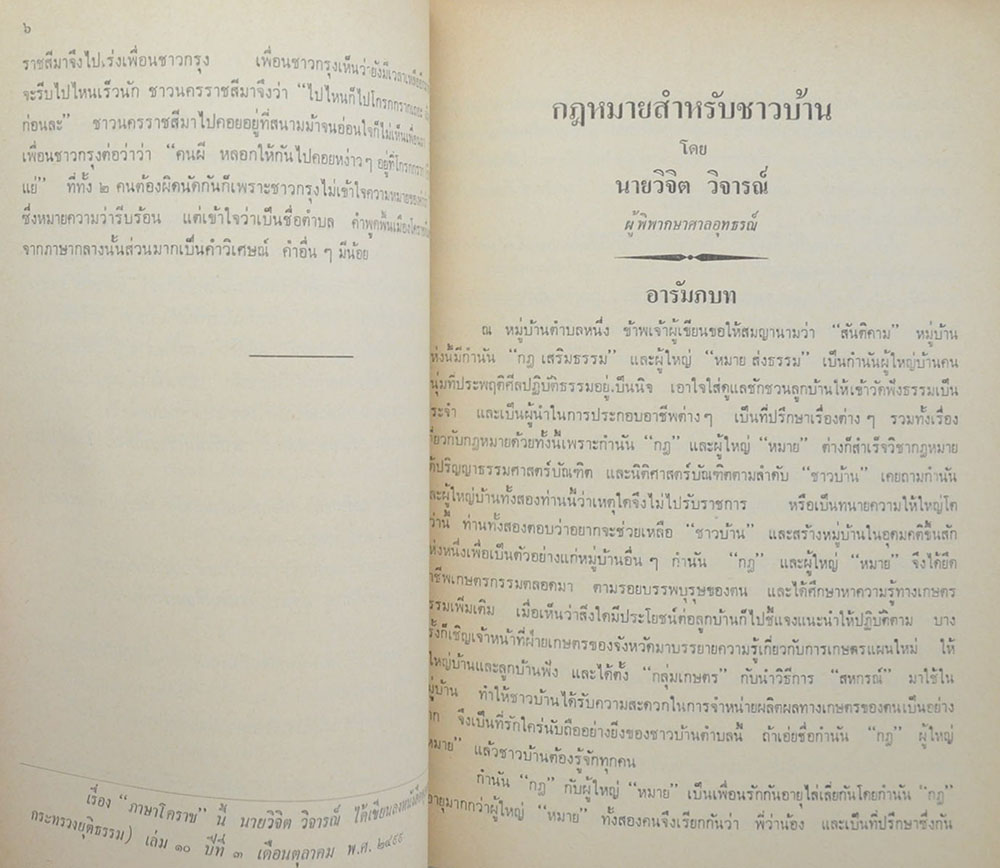 ๖
ราชสีมาจึงไปเร่งเพื่อนชาวกรุง เพื่อนชาวกรุงเห็นว่ายังมีเวลา
จะรีบไปไหนเร็วนัก ชาวนครราชสีมาจึงว่า “ไปไหนก็ไปโกรกกราก
ก่อนละ” ชาวนครราชสีมาไปคอยอยู่ที่สนามม้าจนอ่อนใจก็ไม่เห็นเพื่อน
เพื่อนชาวกรุงต่อว่าว่า “คนผี หลอกให้กันไปคอยหง่าวๆ อยู่ที่โกรกกราก
แย่” ที่ทั้ง ๒ คนต้องผิดนัดกันก็เพราะชาวกรุงไม่เข้าใจความหมายของ
ซึ่งหมายความว่ารีบร้อน แต่เข้าใจว่าเป็นชื่อตำบล คำพูดพื้นเมืองโคราช
จากภาษากลางนั้นส่วนมากเป็นคำวิเศษณ์ คำอื่น ๆ มีน้อย
เรื่อง “ภาษาโคราช” นี้ นายวิจิต วิจารณ์ ได้เขียนลง
กระทรวงยุติธรรม) เล่ม ๑๐ ปีที่ ๓ เดือนตุลาคม พ.ศ. ๒๔๙๙
กฎหมายสำหรับชาวบ้าน
โดย
นายวิจิต วิจารณ์
ผู้พิพากษาศาลอุทธรณ์
อารัมภบท
ณ หมู่บ้านตำบลหนึ่ง ข้าพเจ้าผู้เขียนขอให้สมญานามว่า “สันติคาม” หมู่บ้าน
ห่งนี้มีกำนัน “กฎ เสริมธรรม” และผู้ใหญ่ “หมาย ส่งธรรม” เป็นกำนันผู้ใหญ่บ้านคน
นุ่มที่ประพฤติศีลปฏิบัติธรรมอยู่เป็นนิจ เอาใจใส่ดูแลชักชวนลูกบ้านให้เข้าวัดฟังธรรมเป็น
ระจำ และเป็นผู้นำในการประกอบอาชีพต่างๆ เป็นที่ปรึกษาเรื่องต่าง ๆ รวมทั้งเรื่อง
กี่ยวกับกฎหมายด้วยทั้งนี้เพราะกำนัน “กฎ” และผู้ใหญ่ “หมาย” ต่างก็สำเร็จวิชากฎหมาย
ด้ปริญญาธรรมศาสตร์บัณฑิต และนิติศาสตร์บัณฑิตตามลำดับ “ชาวบ้าน” เคยถามกำนัน
ละผู้ใหญ่บ้านทั้งสองท่านนี้ว่าเหตุใดจึงไม่ไปรับราชการ หรือเป็นทนายความให้ใหญ่โต
ว่านี้ ท่านทั้งสองตอบว่าอยากจะช่วยเหลือ “ชาวบ้าน” และสร้างหมู่บ้านในอุดมคติขึ้นสัก
ห่งหนึ่งเพื่อเป็นตัวอย่างแก่หมู่บ้านอื่น ๆ กำนัน “กฎ” และผู้ใหญ่ “หมาย” จึงได้ยึด
าชีพเกษตรกรรมตลอดมา ตามรอยบรรพบุรุษของตน และได้ศึกษาหาความรู้ทางเกษตร
รรมเพิ่มเติม เมื่อเห็นว่าสิ่งใดมีประโยชน์ต่อลูกบ้านก็ไปชี้แจงแนะนำให้ปฏิบัติตาม บาง
รั้งก็เชิญเจ้าหน้าที่ฝ่ายเกษตรของจังหวัดมาบรรยายความรู้เกี่ยวกับการเกษตรแผนใหม่ ให้
ใหญ่บ้านและลูกบ้านฟัง และได้ตั้ง “กลุ่มเกษตร” กับนำวิธีการ “สหกรณ์” มาใช้ใน
มู่บ้าน ทำให้ชาวบ้านได้รับความสะดวกในการจำหน่ายผลิตผลทางเกษตรของตนเป็นอย่าง
าก จึงเป็นที่รักใคร่นับถืออย่างยิ่งของชาวบ้านตำบลนี้ ถ้าเอ่ยชื่อกำนัน “กฎ” ผู้ใหญ่
หมาย” แล้วชาวบ้านต้องรู้จักทุกคน
กำนัน “กฎ” กับผู้ใหญ่ “หมาย” เป็นเพื่อนรักกันอายุไล่เลี่ยกันโดยกำนัน “กฎ”
อายุมากกว่าผู้ใหญ่ “หมาย” ทั้งสองคนจึงเรียกกันว่า พี่ว่าน้อง และเป็นที่ปรึกษาซึ่งกัน